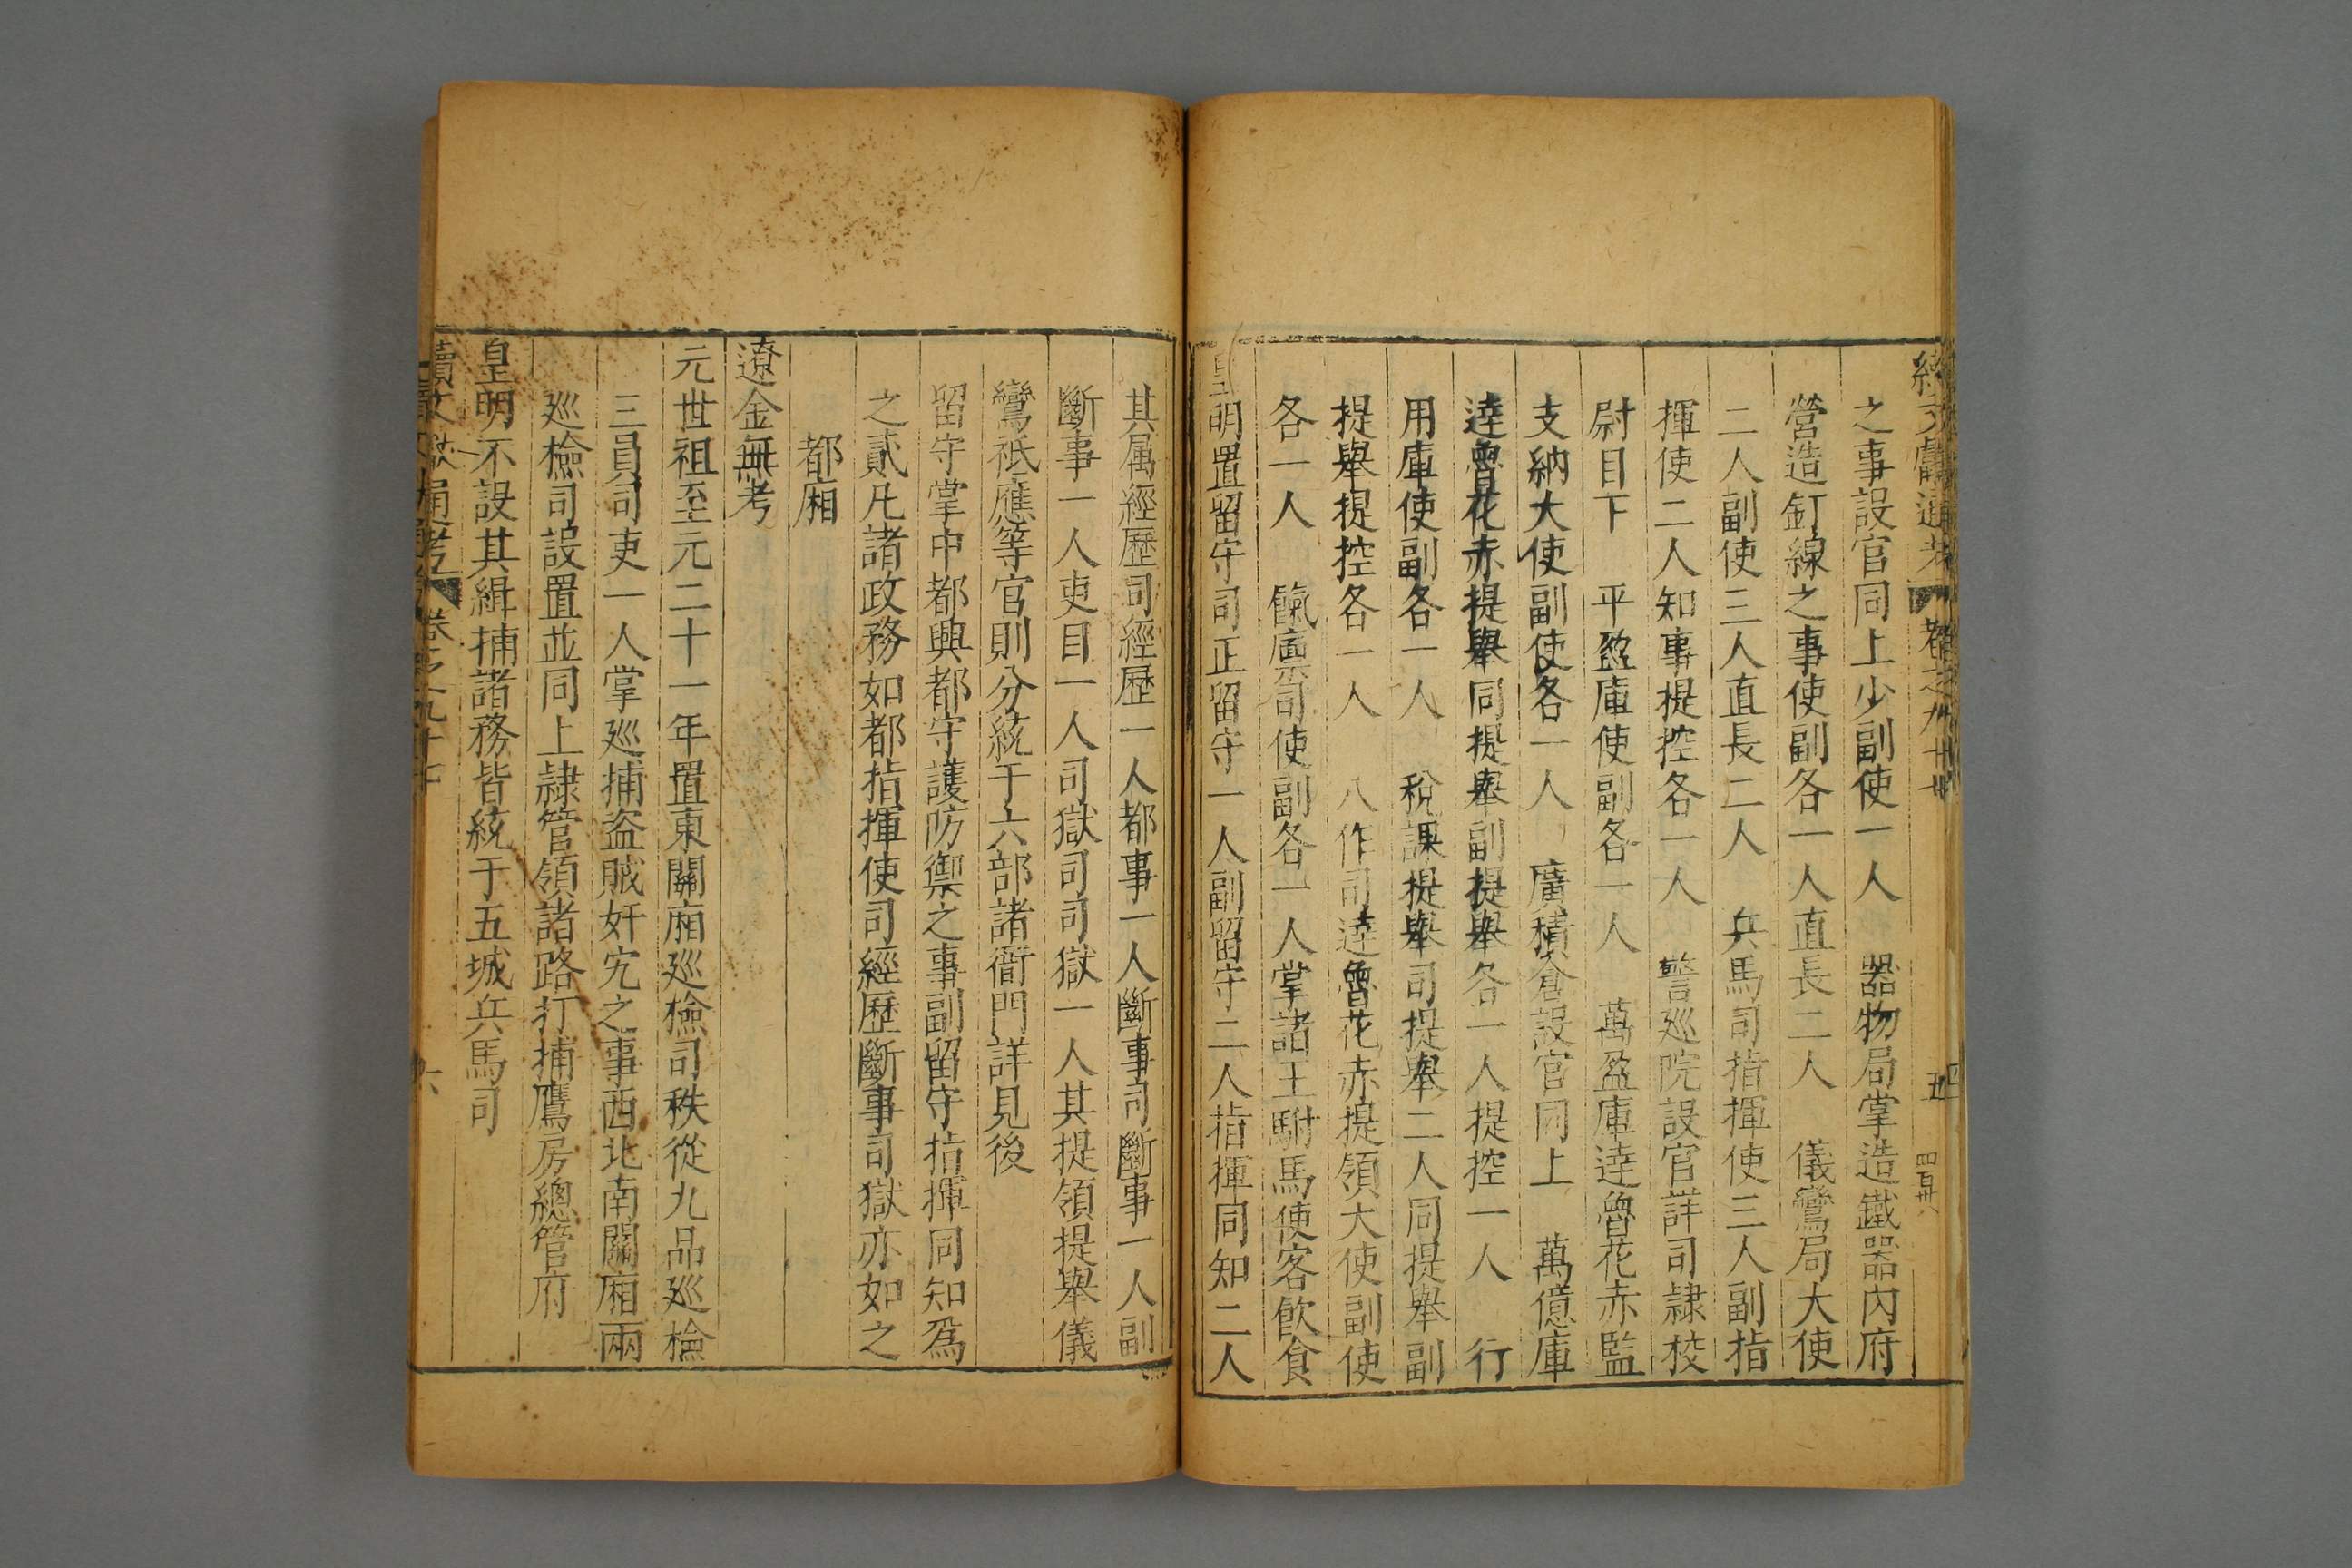 續文獻通考 卷之九十 五 四百卅八
之事設官同上少副使一人 器物局掌造鐵器內府
營造釘線之事使副各一人直長二人 儀鸞局大使
二人副使三人直長二人 兵馬司指揮使三人副指
揮使二人知事提控各一人 警巡院設官詳司隷校
尉目下 平盈庫使副各一人 萬盈庫達魯花赤監
支納大使副使各一人 廣積倉設官同上 萬億庫
達魯花赤提舉同提舉副提舉各一人提控一人 行
用庫使副各一人 稅課提舉司提舉二人同提舉副
提舉提控各一人 八作司達魯花赤提領大使副使
各一人 餼廪司使副各一人掌諸王駙馬使客飲食
皇明置留守司正留守一人副留守二人指揮同知二人
其属經歷司經歷一人都事一人斷事司斷事一人副
斷事一人吏目一人司獄司司獄一人其提領提舉儀
鸞祗應等官則分統于六部諸衙門詳見後
留守掌中都興都守護防禦之事副留守指揮同知爲
之貳凡諸政務如都指揮使司經歷斷事司獄亦如之
都廂
遼金無考
元世祖至元二十一年置東關廂廵檢司秩從九品廵檢
三員司吏一人掌廵捕盗賊奸宄之事西北南關廂兩
廵檢司設置並同上隷管領諸路打捕鷹房緫管府
皇明不設其緝捕諸務皆統于五城兵馬司
續文獻通考 卷之九十 六